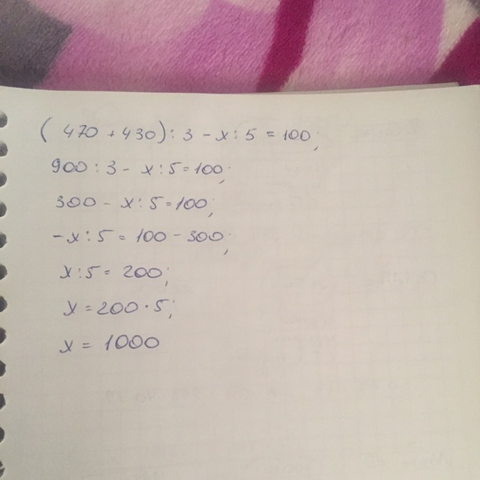 (470 + 430) : 3 - x : 5 = 100;
900 : 3 - x : 5 = 100;
300 - x : 5 = 100;
-x : 5 = 100 - 300;
x : 5 = 200;
x = 200 · 5;
x = 1000